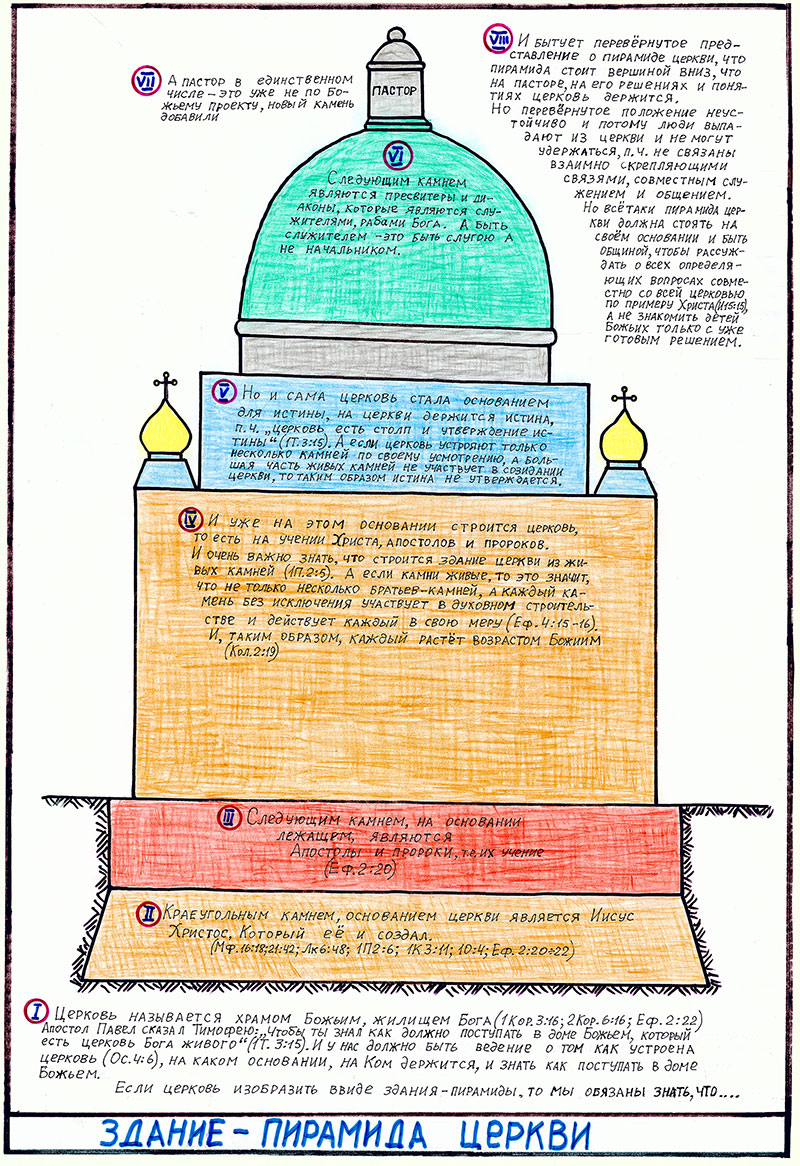 VII А ПАСТОР В ЕДИНСТВЕННОМ
ЧИСЛЕ – ЭТО УЖЕ НЕ ПО БО-
ЖЬЕМУ ПРОЕКТУ, НОВЫЙ КАМЕНЬ
ДОБАВИЛИ
ПАСТОР
VIII И БЫТУЕТ ПЕРЕВЁРНУТОЕ ПРЕД-
СТАВЛЕНИЕ О ПИРАМИДЕ ЦЕРКВИ, ЧТО
ПИРАМИДА СТОИТ ВЕРШИНОЙ ВНИЗ, ЧТО
НА ПАСТОРЕ, НА ЕГО РЕШЕНИЯХ И ПОНЯ-
ТИЯХ ЦЕРКОВЬ ДЕРЖИТСЯ.
НО ПЕРЕВЁРНУТОЕ ПОЛОЖЕНИЕ НЕУС-
ТОЙЧИВО И ПОТОМУ ЛЮДИ ВЫПА-
ДАЮТ ИЗ ЦЕРКВИ И НЕ МОГУТ
УДЕРЖАТЬСЯ, П.Ч. НЕ СВЯЗАНЫ
ВЗАИМНО СКРЕПЛЯЮЩИМИ
СВЯЗЯМИ, СОВМЕСТНЫМ СЛУ-
ЖЕНИЕМ И ОБЩЕНИЕМ.
НО ВСЁТАКИ ПИРАМИДА ЦЕР-
КВИ ДОЛЖНА СТОЯТЬ НА
СВОЁМ ОСНОВАНИИ И БЫТЬ
ОБЩИНОЙ, ЧТОБЫ РАССУЖ-
ДАТЬ О ВСЕХ ОПРЕДЕЛЯ-
ЮЩИХ ВОПРОСАХ СОВМЕ-
СТНО СО ВСЕЙ ЦЕРКОВЬЮ
ПО ПРИМЕРУ ХРИСТА (И15:15),
А НЕ ЗНАКОМИТЬ ДЕТЕЙ
БОЖЬИХ ТОЛЬКО С УЖЕ
ГОТОВЫМ РЕШЕНИЕМ.
VI
СЛЕДУЮЩИМ КАМНЕМ
ЯВЛЯЮТСЯ ПРЕСВИТЕРЫ И ДИ-
АКОНЫ, КОТОРЫЕ ЯВЛЯЮТСЯ СЛУ-
ЖИТЕЛЯМИ, РАБАМИ БОГА. А БЫТЬ
СЛУЖИТЕЛЕМ – ЭТО БЫТЬ СЛУГОЮ А
НЕ НАЧАЛЬНИКОМ.
V НО И САМА ЦЕРКОВЬ СТАЛА ОСНОВАНИЕМ
ДЛЯ ИСТИНЫ, НА ЦЕРКВИ ДЕРЖИТСЯ ИСТИНА,
П.Ч. „ЦЕРКОВЬ ЕСТЬ СТОЛП И УТВЕРЖДЕНИЕ ИС-
ТИНЫ“ (1Т.3:15). А ЕСЛИ ЦЕРКОВЬ УСТРОЯЮТ ТОЛЬКО
НЕСКОЛЬКО КАМНЕЙ ПО СВОЕМУ УСМОТРЕНИЮ, А БОЛЬ-
ШАЯ ЧАСТЬ ЖИВЫХ КАМНЕЙ НЕ УЧАСТВУЕТ В СОЗИДАНИИ
ЦЕРКВИ, ТО ТАКИМ ОБРАЗОМ ИСТИНА НЕ УТВЕРЖДАЕТСЯ.
IV И УЖЕ НА ЭТОМ ОСНОВАНИИ СТРОИТСЯ ЦЕРКОВЬ,
ТО ЕСТЬ НА УЧЕНИИ ХРИСТА, АПОСТОЛОВ И ПРОРОКОВ.
И ОЧЕНЬ ВАЖНО ЗНАТЬ, ЧТО СТРОИТСЯ ЗДАНИЕ ЦЕРКВИ ИЗ ЖИ-
ВЫХ КАМНЕЙ (1П.2:5). А ЕСЛИ КАМНИ ЖИВЫЕ, ТО ЭТО ЗНАЧИТ,
ЧТО НЕ ТОЛЬКО НЕСКОЛЬКО БРАТЬЕВ-КАМНЕЙ, А КАЖДЫЙ КА-
МЕНЬ БЕЗ ИСКЛЮЧЕНИЯ УЧАСТВУЕТ В ДУХОВНОМ СТРОИТЕЛЬ-
СТВЕ И ДЕЙСТВУЕТ КАЖДЫЙ В СВОЮ МЕРУ (ЕФ.4:15-16).
И, ТАКИМ ОБРАЗОМ, КАЖДЫЙ РАСТЁТ ВОЗРАСТОМ БОЖИИМ
(КОЛ.2:19)
III СЛЕДУЮЩИМ КАМНЕМ, НА ОСНОВАНИИ
ЛЕЖАЩЕМ, ЯВЛЯЮТСЯ
АПОСТОЛЫ И ПРОРОКИ, Т.Е. ИХ УЧЕНИЕ
(ЕФ.2:20)
II КРАЕУГОЛЬНЫМ КАМНЕМ, ОСНОВАНИЕМ ЦЕРКВИ ЯВЛЯЕТСЯ ИИСУС
ХРИСТОС, КОТОРЫЙ ЕЁ И СОЗДАЛ.
(МФ.16:18; 21:42; ЛК6:48; 1П2:6; 1К3:11; 10:4; ЕФ.2:20÷22)
I ЦЕРКОВЬ НАЗЫВАЕТСЯ ХРАМОМ БОЖЬИМ, ЖИЛИЩЕМ БОГА (1КОР.3:16; 2КОР.6:16; ЕФ.2:22)
АПОСТОЛ ПАВЕЛ СКАЗАЛ ТИМОФЕЮ: „ЧТОБЫ ТЫ ЗНАЛ КАК ДОЛЖНО ПОСТУПАТЬ В ДОМЕ БОЖЬЕМ, КОТОРЫЙ
ЕСТЬ ЦЕРКОВЬ БОГА ЖИВОГО“ (1Т.3:15). И У НАС ДОЛЖНО БЫТЬ ВЕДЕНИЕ О ТОМ КАК УСТРОЕНА
ЦЕРКОВЬ (ОС.4:6), НА КАКОМ ОСНОВАНИИ, НА КОМ ДЕРЖИТСЯ, И ЗНАТЬ КАК ПОСТУПАТЬ В ДОМЕ
БОЖЬЕМ.
ЕСЛИ ЦЕРКОВЬ ИЗОБРАЗИТЬ ВВИДЕ ЗДАНИЯ-ПИРАМИДЫ, ТО МЫ ОБЯЗАНЫ ЗНАТЬ, ЧТО....
ЗДАНИЕ – ПИРАМИДА ЦЕРКВИ